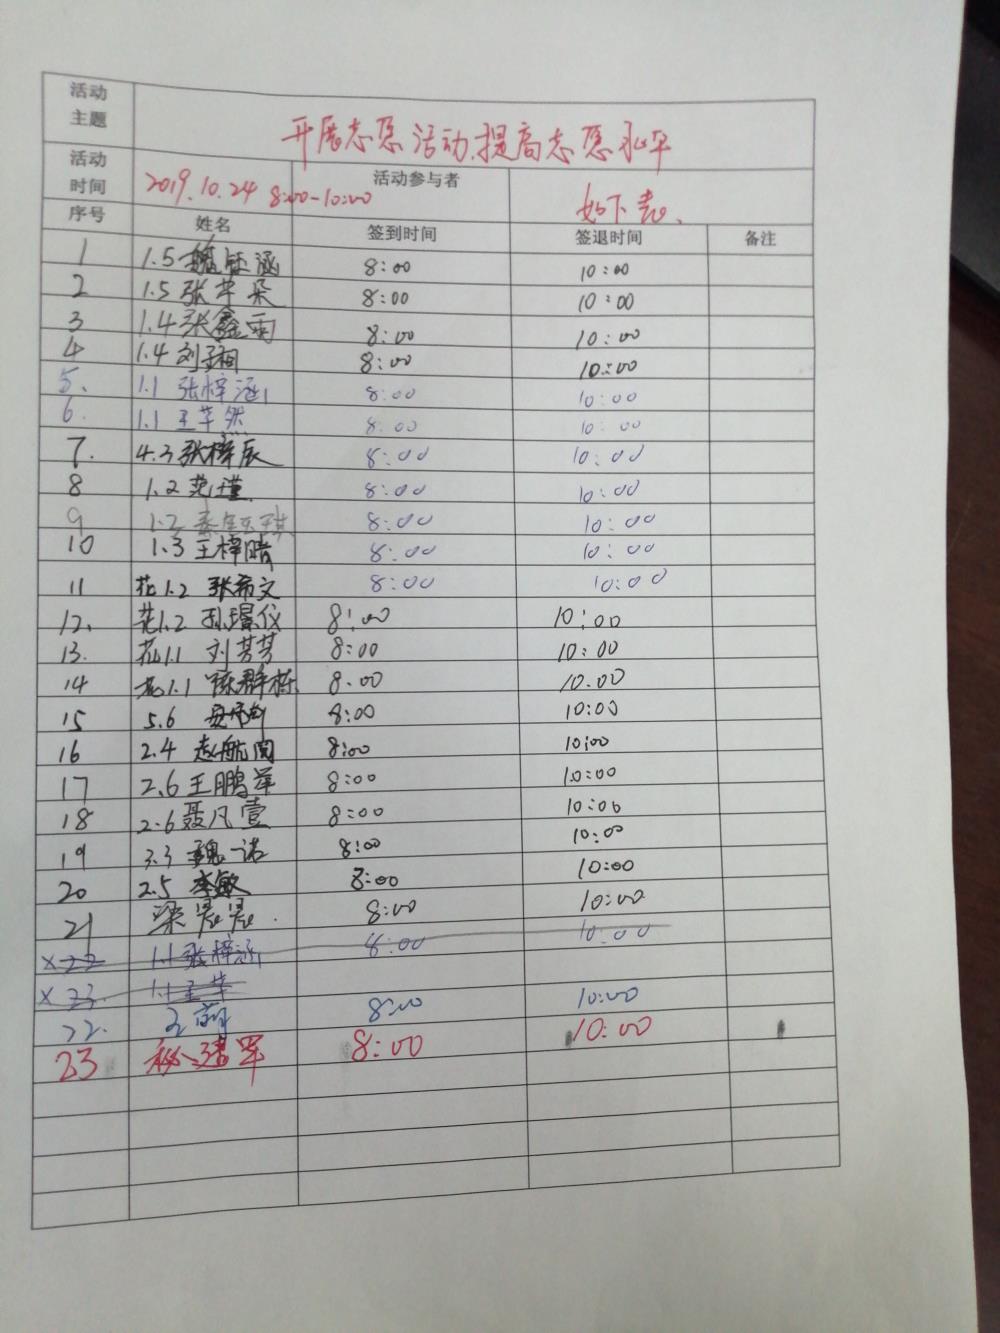 活动主题 开展志愿活动,提高志愿水平
活动时间 2019.10.24 8:00-10:00 活动参与者 如下表、
序号 姓名 签到时间 签退时间 备注
1 1.5 魏钰涵 8:00 10:00
2 1.5 张芊朵 8:00 10:00
3 1.4 张鑫雨 8:00 10:00
4 1.4 刘子桐 8:00 10:00
5. 1.1 张梓涵 8:00 10:00
6. 1.1 王芊然 8:00 10:00
7. 4.3 张梓辰 8:00 10:00
8 1.2 范瑾 8:00 10:00
9 1.2 8:00 10:00
10 1.3 王梓晴 8:00 10:00
11 花1.2 张希文 8:00 10:00
12. 花1.2 孙璟仪 8:00 10:00
13. 花1.1 刘芳芳 8:00 10:00
14 花1.1 陈群栋 8.00 10.00
15 5.6 8:00 10:00
16 2.4 赵航闻 8:00 10:00
17 2.6 王鹏军 8:00 10:00
18 2.6 聂凡壹 8:00 10:00
19 3.3 魏一诺 8:00 10:00
20 2.5 李敏 8:00 10:00
21 梁晨晨. 8:00 10:00
×22 1.1 张梓涵 8:00 10:00
×23. 1.1 王芊
22. 王萌 8:00 10:00
23 8:00 10:00